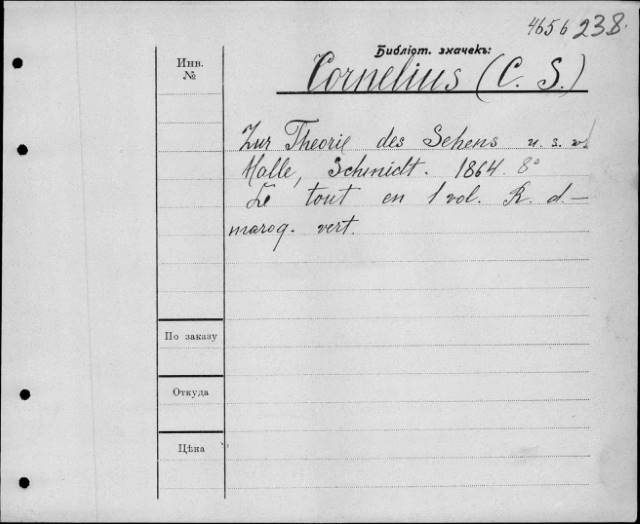 4656 238.
Библіот. значекъ:
Инв.
№
Cornelius (C. S.)
Zur Theorie des Sehens u. s. w.
Halle, Schmidt. 1864. 8°
Le tout en 1 vol. R. d.—
maroq. vert.
По заказу
Откуда
Цѣна